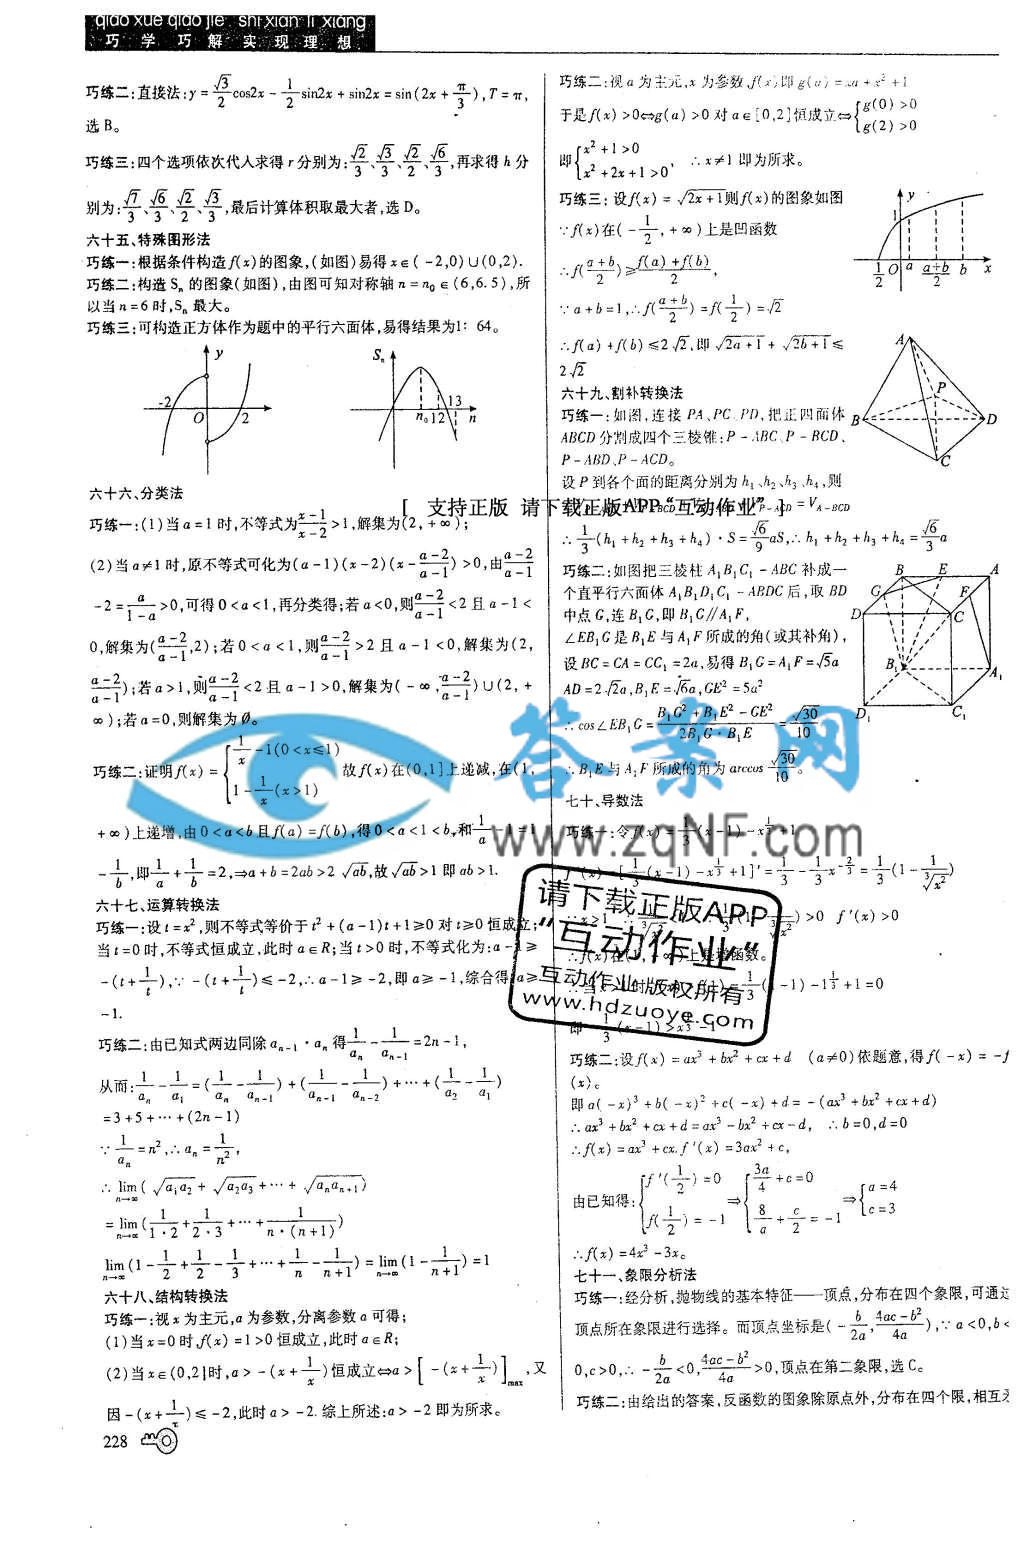 qiao xue qiao jie shi xian li xiang
巧学巧解实现理想
巧练二:直接法:y=√3/2cos2x-1/2sin2x+sin2x=sin(2x+π/3),T=π,
选B。
巧练三:四个选项依次代人求得r分别为:√2/3、√3/3、√2/2、√6/3,再求得h分
别为:√7/3、√6/3、√2/2、√3/3,最后计算体积取最大者,选D。
六十五、特殊图形法
巧练一:根据条件构造f(x)的图象,(如图)易得x∈(-2,0)∪(0,2).
巧练二:构造Sn的图象(如图),由图可知对称轴n=n0∈(6,6.5),所
以当n=6时,Sn最大。
巧练三:可构造正方体作为题中的平行六面体,易得结果为1:64。
y
-2 O 2
Sn
n0 12 13 n
六十六、分类法
巧练一:(1)当a=1时,不等式为x-1/x-2>1,解集为(2,+∞);
(2)当a≠1时,原不等式可化为(a-1)(x-2)(x-a-2/a-1)>0,由a-2/a-1
-2=a/1-a>0,可得0<a<1,再分类得;若a<0,则a-2/a-1<2且a-1<
0,解集为(a-2/a-1,2);若0<a<1,则a-2/a-1>2且a-1<0,解集为(2,
a-2/a-1);若a>1,则a-2/a-1<2且a-1>0,解集为(-∞,a-2/a-1)∪(2,+
∞);若a=0,则解集为Ø。
巧练二:证明f(x)={1/x-1(0<x≤1) 1-1/x(x>1) 故f(x)在(0,1]上递减,在(1,
+∞)上递增,由0<a<b且f(a)=f(b),得0<a<1<b,和1/a-1=1
-1/b,即1/a+1/b=2,⇒a+b=2ab>2√ab,故√ab>1即ab>1.
六十七、运算转换法
巧练一:设t=x²,则不等式等价于t²+(a-1)t+1≥0对t≥0恒成立;
当t=0时,不等式恒成立,此时a∈R;当t>0时,不等式化为:a-1≥
-(t+1/t),∵-(t+1/t)≤-2,∴a-1≥-2,即a≥-1,综合得a≥
-1.
巧练二:由已知式两边同除an-1·an得1/an-1/an-1=2n-1,
从而:1/an-1/a1=(1/an-1/an-1)+(1/an-1-1/an-2)+…+(1/a2-1/a1)
=3+5+…+(2n-1)
∵1/an=n²,∴an=1/n²,
∴lim n→∞(√a1a2+√a2a3+…+√anan+1)
=lim n→∞(1/1·2+1/2·3+…+1/n·(n+1))
lim n→∞(1-1/2+1/2-1/3+…+1/n-1/n+1)=lim n→∞(1-1/n+1)=1
六十八、结构转换法
巧练一:视x为主元,a为参数,分离参数a可得;
(1)当x=0时,f(x)=1>0恒成立,此时a∈R;
(2)当x∈(0,2]时,a>-(x+1/x)恒成立⇔a>[-(x+1/x)]max,又
因-(x+1/x)≤-2,此时a>-2.综上所述:a>-2即为所求。
228
巧练二:视a为主元,x为参数,f(x)即g(a)=xa+x²+1
于是f(x)>0⇔g(a)>0对a∈[0,2]恒成立⇔{g(0)>0 g(2)>0
即{x²+1>0 x²+2x+1>0, ∴x≠1即为所求。
巧练三:设f(x)=√2x+1则f(x)的图象如图
∵f(x)在(-1/2,+∞)上是凹函数
∴f(a+b/2)≥f(a)+f(b)/2,
∵a+b=1,∴f(a+b/2)=f(1/2)=√2
∴f(a)+f(b)≤2√2,即√2a+1+√2b+1≤
2√2
y
1
1/2 O a a+b/2 b x
六十九、割补转换法
巧练一:如图,连接PA、PC、PD,把正四面体
ABCD分割成四个三棱锥:P-ABC、P-BCD、
P-ABD、P-ACD。
设P到各个面的距离分别为h1、h2、h3、h4,则
[ 支持正版 请下载正版APP“互动作业” ]
P-ACD=VA-BCD
∴1/3(h1+h2+h3+h4)·S=√6/9aS,∴h1+h2+h3+h4=√6/3a
A
P
B D
C
巧练二:如图把三棱柱A1B1C1-ABC补成一
个直平行六面体A1B1D1C1-ABDC后,取BD
中点G,连B1G,即B1G∥A1F,
∠EB1G是B1E与A1F所成的角(或其补角),
设BC=CA=CC1=2a,易得B1G=A1F=√5a
AD=2√2a,B1E=√6a,GE²=5a²
∴cos∠EB1G=B1G²+B1E²-GE²/2B1G·B1E=√30/10
∴B1E与A1F所成的角为arccos√30/10。
B E A
G F
D C
B1 A1
D1 C1
答案网
www.zqNF.com
七十、导数法
巧练一:令f(x)=1/3(x-1)-x^1/3+1
f'(x)=[1/3(x-1)-x^1/3+1]'=1/3-1/3x^-2/3=1/3(1-1/³√x²)
∵x>1 )>0 f'(x)>0
∴f(x)在(1,+∞)上是增函数。
1/3(1-1)-1^1/3+1=0
即1/3(x-1)>x^1/3-1
请下载正版APP
“互动作业”
互动作业版权所有
www.hdzuoye.com
巧练二:设f(x)=ax³+bx²+cx+d (a≠0)依题意,得f(-x)=-f
(x)。
即a(-x)³+b(-x)²+c(-x)+d=-(ax³+bx²+cx+d)
∴ax³+bx²+cx+d=ax³-bx²+cx-d, ∴b=0,d=0
∴f(x)=ax³+cx.f'(x)=3ax²+c,
由已知得:{f'(1/2)=0 f(1/2)=-1 ⇒{3a/4+c=0 8/a+c/2=-1 ⇒{a=4 c=3
∴f(x)=4x³-3x。
七十一、象限分析法
巧练一:经分析,抛物线的基本特征——顶点,分布在四个象限,可通过
顶点所在象限进行选择。而顶点坐标是(-b/2a,4ac-b²/4a),∵a<0,b<
0,c>0,∴-b/2a<0,4ac-b²/4a>0,顶点在第二象限,选C。
巧练二:由给出的答案,反函数的图象除原点外,分布在四个限,相互